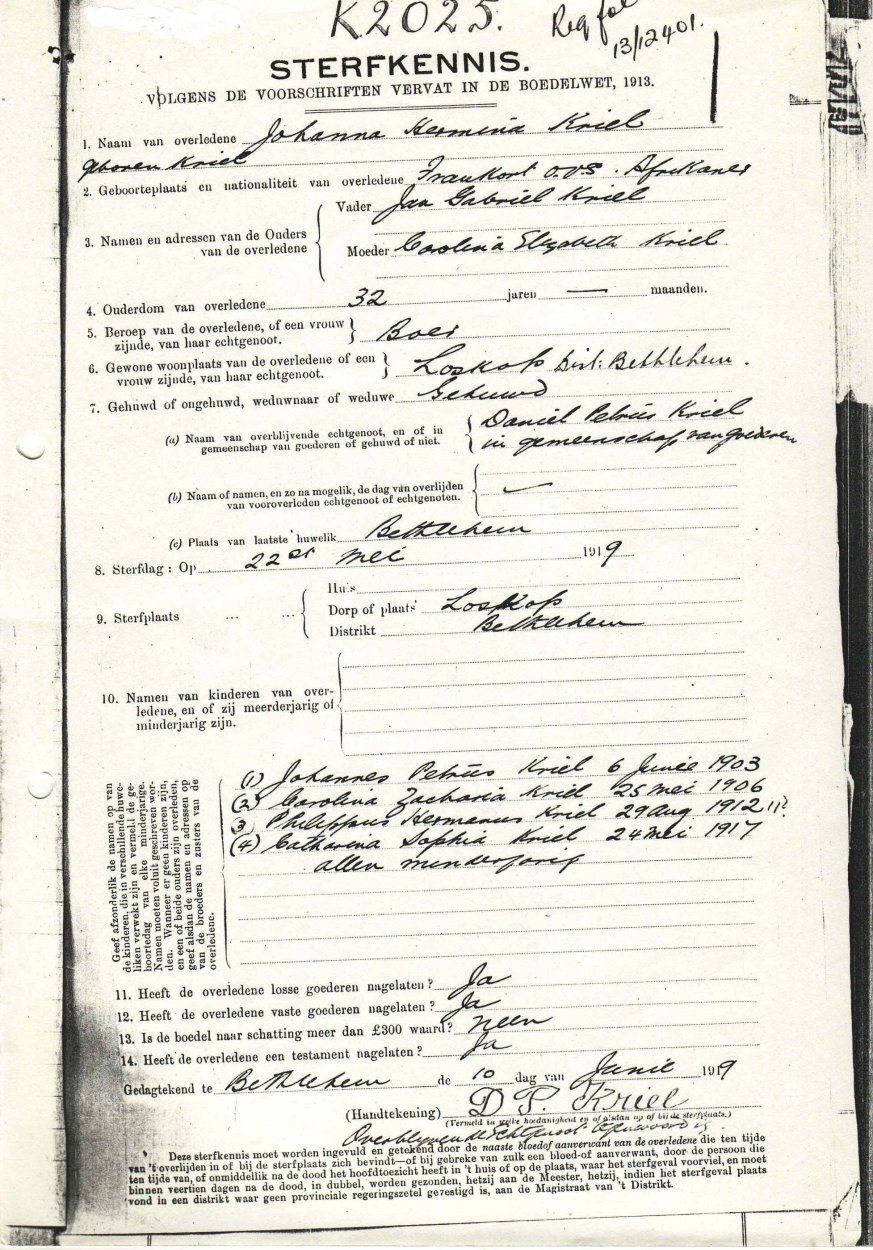 K2025.
Reg fol
13/12401.
STERFKENNIS.
VOLGENS DE VOORSCHRIFTEN VERVAT IN DE BOEDELWET, 1913.
1. Naam van overledene Johanna Hermina Kriel
geboren Kriel
2. Geboorteplaats en nationaliteit van overledene Frankort O.V.S. Afrikaner
3. Namen en adressen van de Ouders van de overledene
Vader Jan Gabriel Kriel
Moeder Carolina Elizabeth Kriel
4. Ouderdom van overledene 32 jaren — maanden.
5. Beroep van de overledene, of een vrouw
zijnde, van haar echtgenoot. Boer
6. Gewone woonplaats van de overledene of een
vrouw zijnde, van haar echtgenoot. Loskop Dist: Bethlehem.
7. Gehuwd of ongehuwd, weduwnaar of weduwe Gehuwd
(a) Naam van overblijvende echtgenoot, en of in
gemeenschap van goederen of gehuwd of niet.
Daniel Petrus Kriel
in gemeenschap van goederen
(b) Naam of namen, en zo na mogelik, de dag van overlijden
van vooroverleden echtgenoot of echtgenoten. —
(c) Plaats van laatste huwelik Bethlehem
8. Sterfdag: Op 22st Mei 1919
9. Sterfplaats ... ...
Huis
Dorp of plaats Loskop
Distrikt Bethlehem
10. Namen van kinderen van over-
ledene, en of zij meerderjarig of
minderjarig zijn.
Geef afzonderlik de namen op van
de kinderen, die in verschillende huwe-
liken verwekt zijn en vermeld de ge-
boortedag van elke minderjarige.
Namen moeten voluit geschreven wor-
den. Wanneer er geen kinderen zijn,
en een of beide ouders zijn overleden,
geef alsdan de namen en adressen op
van de broeders en zusters van de
overledene.
(1) Johannes Petrus Kriel 6 Junie 1903
(2) Carolina Zacharia Kriel 25 Mei 1906
(3) Philippus Hermanus Kriel 29 Aug 1912 11?
(4) Catharina Sophia Kriel 24 Mei 1917
allen minderjarig
11. Heeft de overledene losse goederen nagelaten? Ja
12. Heeft de overledene vaste goederen nagelaten? Ja
13. Is de boedel naar schatting meer dan £300 waard? Neen
14. Heeft de overledene een testament nagelaten? Ja
Gedagtekend te Bethlehem de 10 dag van Junie 1919
(Handtekening) D P Kriel
(Vermeld in welke hoedanigheid en of alsdan op of bij de sterfplaats.)
Overblyvende Echtgenoot
Deze sterfkennis moet worden ingevuld en getekend door de naaste bloedof aanverwant van de overledene die ten tijde
van 't overlijden in of bij de sterfplaats zich bevindt—of bij gebreke van zulk een bloed-of aanverwant, door de persoon die
ten tijde van, of onmiddellik na de dood het hoofdtoezicht heeft in 't huis of op de plaats, waar het sterfgeval voorviel, en moet
binnen veertien dagen na de dood, in dubbel, worden gezonden, hetzij aan de Meester, hetzij, indien het sterfgeval plaats
vond in een distrikt waar geen provinciale regeringszetel gevestigd is, aan de Magistraat van 't Distrikt.